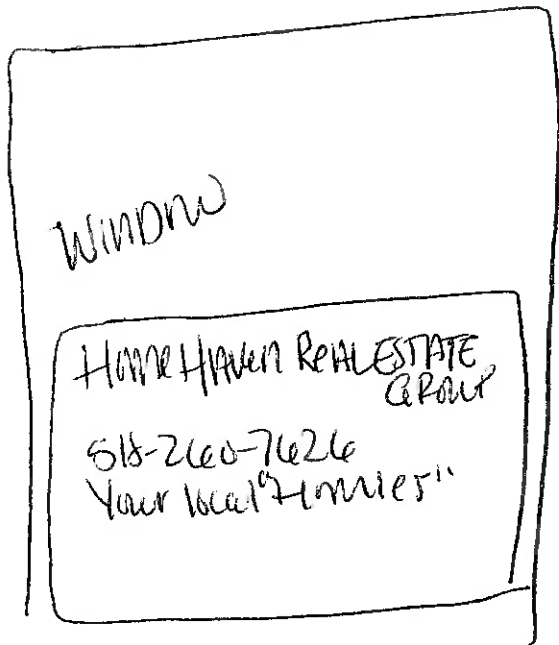 WINDOW
Home Haven Real Estate
Group
518-260-7626
Your local "Homies"